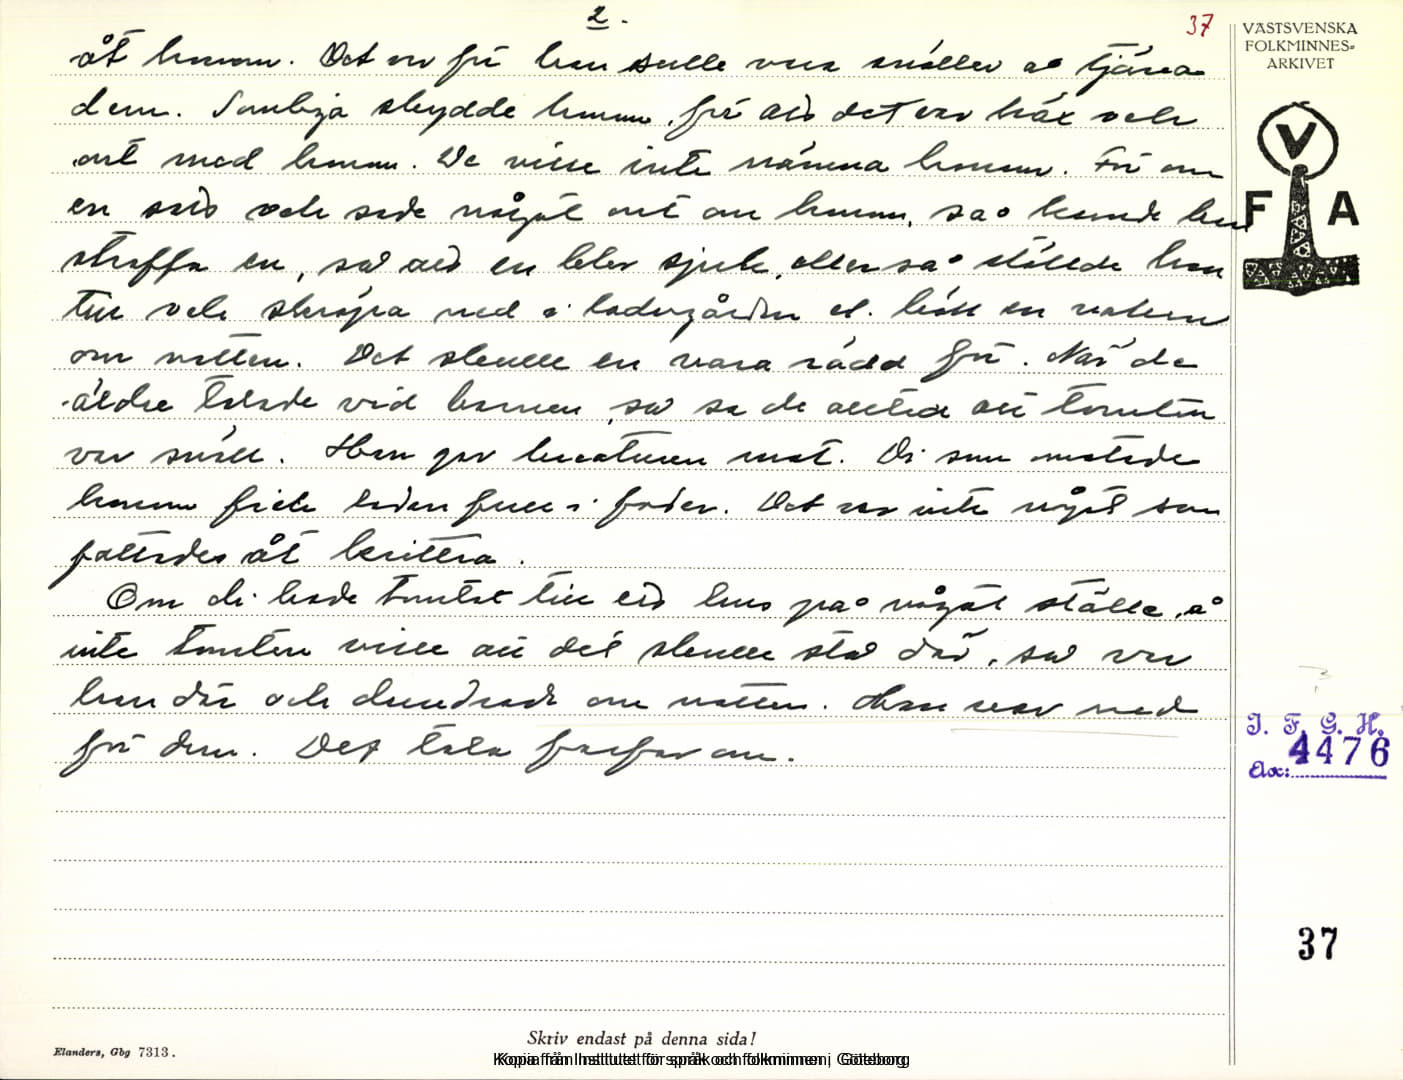 2.
37
VÄSTSVENSKA
FOLKMINNES-
ARKIVET
V
F A
åt honom. Det var för han sulle vara snäller å tjäna
dem. Somliga skydde honom, för att det var häx och
ont med honom. De ville inte nämna honom. För om
en sad och sade något ont om honom, så kunde han
straffa en, så att en blev sjuk, eller så ställde han
till och skräpa ned i ladugården el. höll en vaken
om natten. Det skulle en vara rädd för. När de
äldre talade vid barnen, så sa de alltid att tomten
var snäll. Han gav kreaturen mat. Di som matade
honom fick ladan full i foder. Det var inte något som
fattades åt krittera.
Om di hade tomtat till ett hus på något ställe, å
inte tomten ville att det skulle stå där, så var
han där och dundrade om natten. Han rev ned
för dem. Det tala farfar om.
I. F. G. H.
Acc: 4476
37
Skriv endast på denna sida!
Elanders, Gbg 7313.
Kopia från Institutet för språk och folkminnen i Göteborg